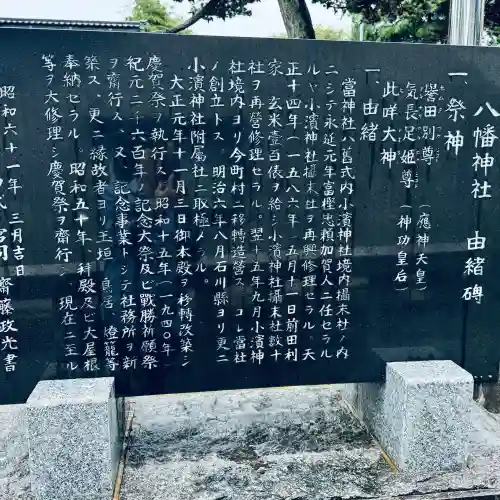 八幡神社 由緒碑
一 祭神
譽田別尊 (應神天皇)
氣長足姫尊 (神功皇后)
此咩大神
一 由緒
當神社ハ舊式内小濱神社境内攝末社ノ内
ニシテ永延元年富樫忠頼加賀人ニ任セラル
ルヤ小濱神社攝末社ヲ再興修理セラル。天
正十四年(一五八六年)五月十一日前田利
家 玄米壹百俵ヲ給シ小濱神社攝末社數十
社ヲ再營修理セラル。翌十五年九月小濱神
社境内ヨリ今町村ニ移轉造營ス コレ當社
ノ創立トス 明治六年八月石川縣ヨリ更ニ
小濱神社附屬社ニ取極メラル。
大正元年十一月三日御本殿ヲ移轉改築シ
慶賀祭ヲ執行ス 昭和十五年(一九四〇年)
紀元二千六百年ノ記念大祭及ビ戰勝祈願祭
ヲ齋行ス、又 記念事業トシテ社務所ヲ新
築ス 更ニ縁故者ヨリ玉垣 鳥居 燈籠等
奉納セラル 昭和五十年 拜殿及ビ大屋根
等ヲ大修理シ慶賀祭ヲ齋行シ、現在ニ至ル
昭和六十一年 三月吉日
宮司 齋藤政光書